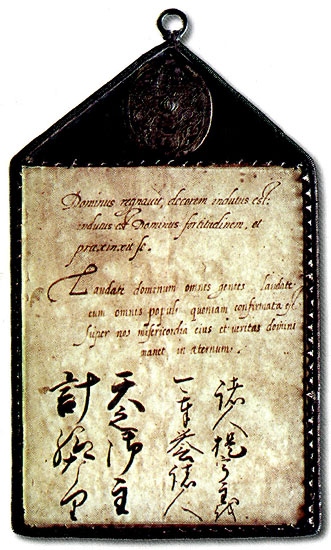 Dominus regnavit, decorem indutus est:
indutus est Dominus fortitudinem, et
præcinxit se.
Laudate dominum omnes gentes, laudate
eum omnes populi quoniam confirmata est
super nos misericordia eius et veritas domini
manet in æternum.
諸人
誉諸人
天之御主
計